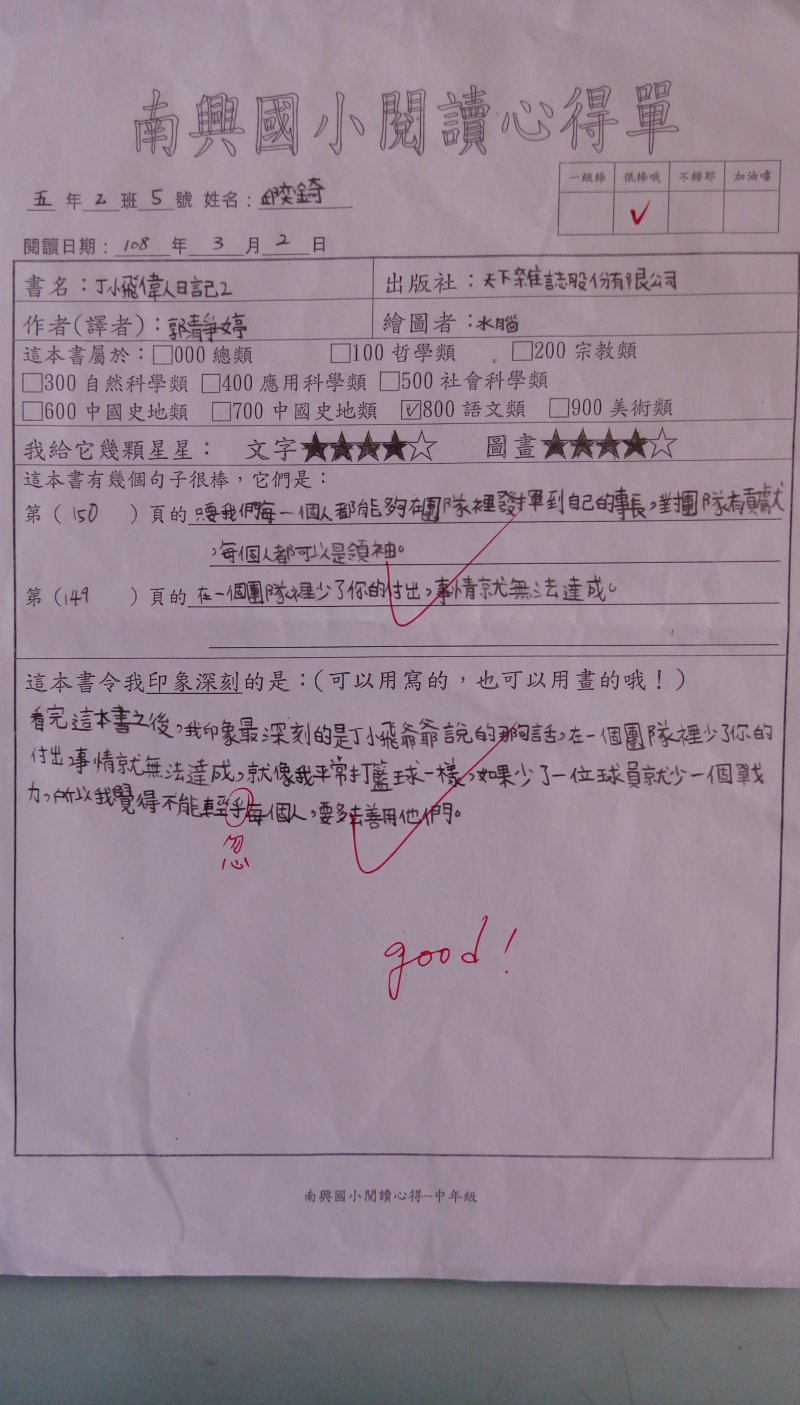 南興國小閱讀心得單
一級棒 很棒哦 不錯耶 加油嘍
五年2班5號 姓名：邱奕錡
閱讀日期：108年3月2日
書名：丁小飛偉人日記2 出版社：天下雜誌股份有限公司
作者(譯者)：郭瀞婷 繪圖者：水腦
這本書屬於：□000 總類 □100 哲學類 □200 宗教類
□300 自然科學類 □400 應用科學類 □500 社會科學類
□600 中國史地類 □700 中國史地類 ☑800 語文類 □900 美術類
我給它幾顆星星： 文字★★★★☆ 圖畫★★★★☆
這本書有幾個句子很棒，它們是：
第（150）頁的 只要我們每一個人都能夠在團隊裡發揮到自己的專長，對團隊有貢獻
，每個人都可以是領袖。
第（149）頁的 在一個團隊裡少了你的付出，事情就無法達成。
這本書令我印象深刻的是：(可以用寫的，也可以用畫的哦！)
看完這本書之後，我印象最深刻的是丁小飛爺爺說的那句話，在一個團隊裡少了你的
付出，事情就無法達成，就像我平常打籃球一樣，如果少了一位球員就少一個戰
力，所以我覺得不能輕乎每個人，要多去善用他們。
忽
good!
南興國小閱讀心得~中年級